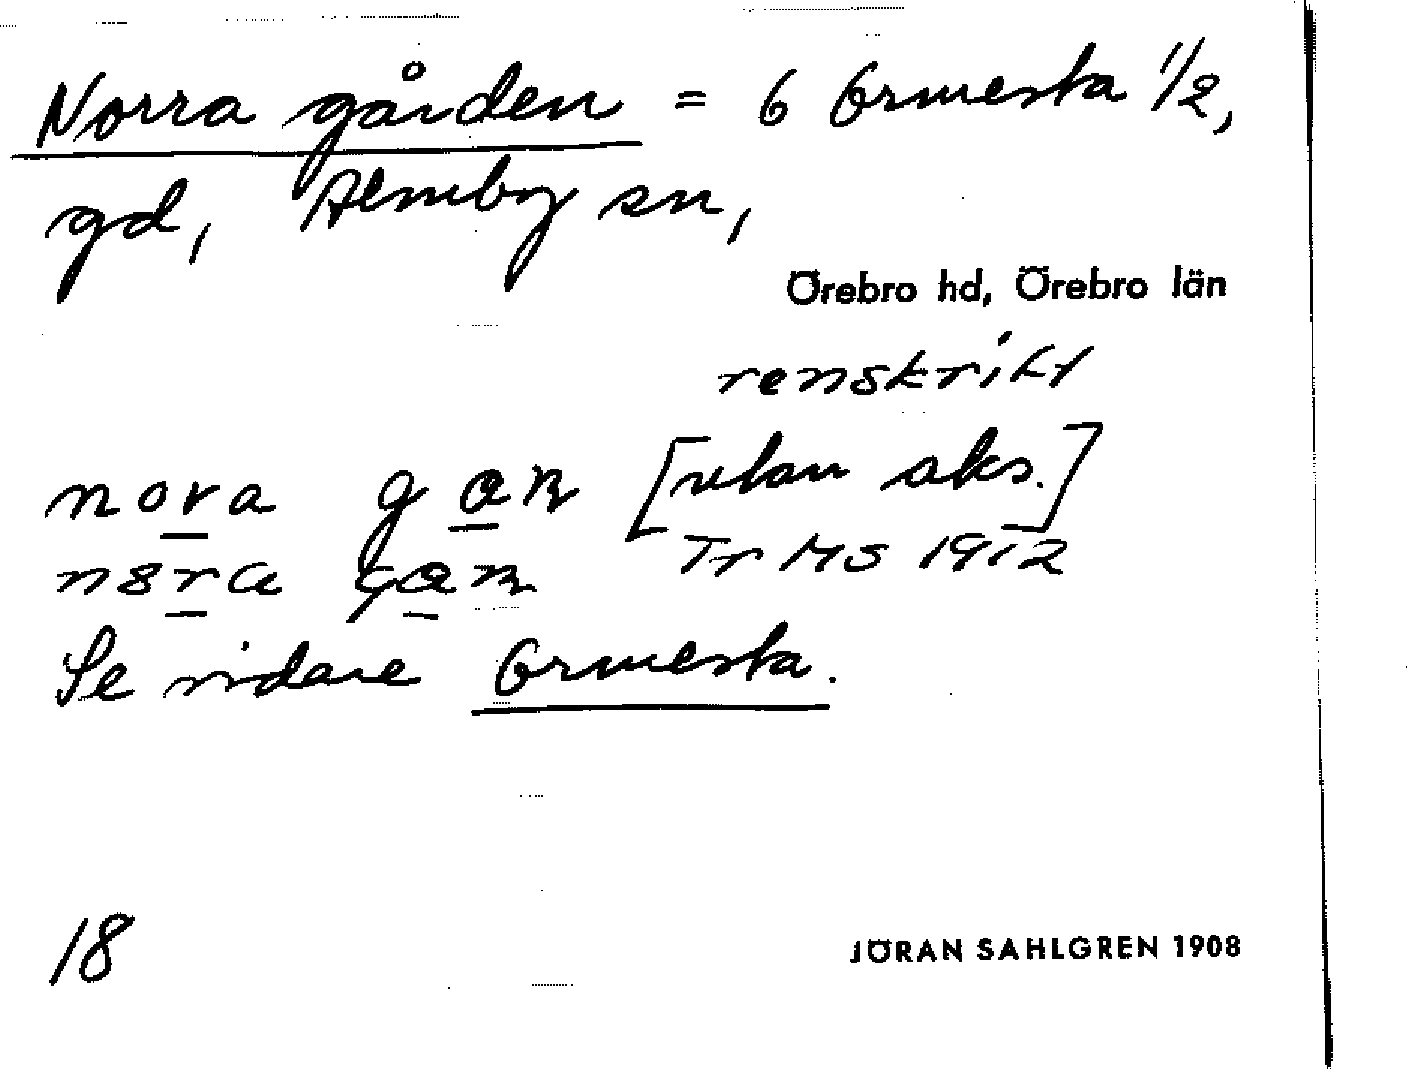 Norra gården = 6 Ormesta 1/2,
gd, Almby sn,
Örebro hd, Örebro län
renskrift
nora gaɳ [utan aks.]
Tr MS 1912
Se vidare Ormesta.
18
JÖRAN SAHLGREN 1908